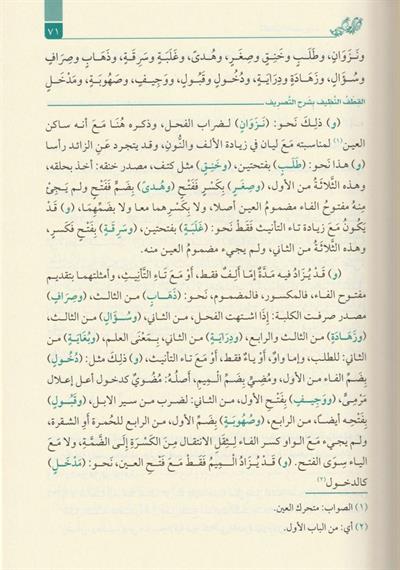 ٧١
وَنَزَوَانٍ، وَطَلَبٍ وَخَنِقٍ وَصِغَرٍ، وَهُدًى، وَغَلَبَةٍ وَسَرِقَةٍ، وَذَهَابٍ وَصِرَافٍ
وَسُؤَالٍ، وَزَهَادَةٍ وَدِرَايَةٍ، وَدُخُولٍ وَقَبُولٍ، وَوَجِيفٍ، وَصُهُوبَةٍ، وَمَدْخَلٍ
القطف النظيف بشرح التصريف
(و) ذلِكَ نَحوُ: (نَزَوَانٍ) لضراب الفحل، وذكره هُنَا مَعَ أنه ساكن
العين(١) لمناسبته مع ليان في زيادة الألف والنُّونِ، وقد يتجرد عَنِ الزائد رأسا
(و) هذا نَحو: (طَلَبٍ) بفتحتين، (وخَنِقٍ) مثل كتف، مصدر خنقه: أخذ بحلقه،
وهذه الثَّلاثَةُ من الأول، (وصِغَرٍ) بِكَسْرٍ فَفَتْحٍ (وهُدًى) بِضَمٍّ فَفَتْحٍ ولم يَجِئْ
مِنْه مفتوحُ الفاء مضمومُ العين أصلا، ولا بِكَسْرِهما معا ولا بضَمِّهِمَا، (و) قَدْ
يَكُونُ مَعَ زيادة تاء التأنيث فَقَطْ نَحْوُ: (غَلَبَةٍ) بفتحتين، (وسَرِقَةٍ) بِفَتْحٍ فَكَسْرٍ،
وهذه الثَّلاثَةُ من الثاني، ولم يجيء مضموم العين منه.
(و) قَدْ يُزَادُ فيه مَدَّةٌ إمَّا أَلِفٌ فقط، أَوْ مَعَ تَاءِ التَّأْنِيثِ، وأمثلتهما بتقديم
مفتوح الفاء، فالمكسور، فالمضموم، نَحْوُ: (ذَهَابٍ) من الثالث، (وصِرَافٍ)
مصدر صرفت الكلبة: إِذَا اشتهت الفحل، من الثاني، (وسُؤَالٍ) من الثالث،
(وزَهَادَةٍ) من الثالث والرابع، (ودِرَايَةٍ) من الثاني، بِمَعْنَى العلم، (وبُغَايَةٍ) من
الثاني: للطلب، وإما واوٌ، أَوْ ياءٌ فقط، أَوْ مَعَ تاء التأنيث، (و) ذلك مثل: (دُخُولٍ)
بِضَمِّ الفاء من الأول، ومُضِيٍّ بِضَمِّ الميم، أصلُهُ: مُضُويٌ كدخول أعل إعلال
مَرْمِيٍّ، (ووَجِيفٍ) بِفَتْحِ الأول، من الثاني: لضرب من سير الابل، (وقَبُولٍ)
بِفَتْحِه أيضًا، من الرابع، (وصُهُوبَةٍ) بِضَمِّ الأول، من الرابع للحُمرة أو الشقرة،
ولم يجيء مَعَ الواو كسر الفاء لِثِقَلِ الانتقال مِنَ الكَسْرَةِ إلَى الضَّمَّةِ، ولا مَعَ
الياء سِوَى الفتح. (و) قَدْ يُزَادُ الْمِيمُ فَقَطْ مَعَ فَتْحِ العين، نَحوُ: (مَدْخَلٍ)
كالدخول(٢)
(١) الصواب: متحرك العين.
(٢) أي: من الباب الأول.